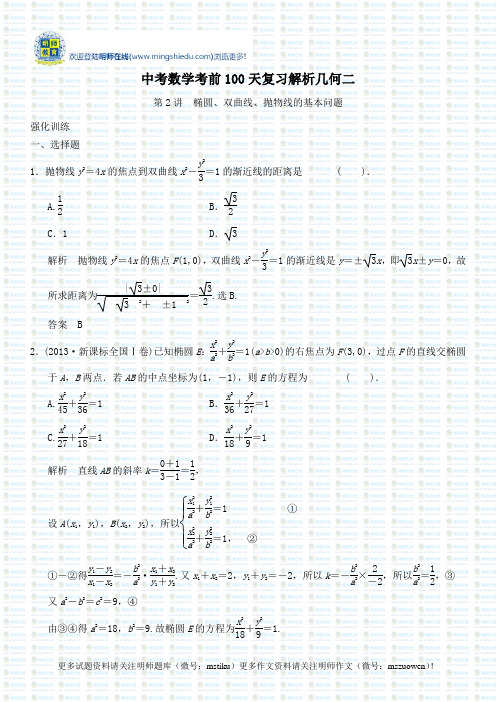 明师教育
欢迎登陆明师在线(www.mingshiedu.com)浏览更多!
中考数学考前100天复习解析几何二
第2讲 椭圆、双曲线、抛物线的基本问题
强化训练
一、选择题
1．抛物线y²＝4x的焦点到双曲线x²－y²/3＝1的渐近线的距离是 ( )．
A.1/2 B．√3/2
C．1 D．√3
解析 抛物线y²＝4x的焦点F(1,0)，双曲线x²－y²/3＝1的渐近线是y＝±√3x，即√3x±y＝0，故
所求距离为|√3±0|/√(√3 ²＋ ±1 ²)＝√3/2.选B.
答案 B
2．(2013·新课标全国Ⅰ卷)已知椭圆E：x²/a²＋y²/b²＝1(a>b>0)的右焦点为F(3,0)，过点F的直线交椭圆
于A，B两点．若AB的中点坐标为(1，－1)，则E的方程为 ( )．
A.x²/45＋y²/36＝1 B．x²/36＋y²/27＝1
C.x²/27＋y²/18＝1 D．x²/18＋y²/9＝1
解析 直线AB的斜率k＝(0＋1)/(3－1)＝1/2，
设A(x₁，y₁)，B(x₂，y₂)，所以{x₁²/a²＋y₁²/b²＝1 ①
x₂²/a²＋y₂²/b²＝1， ②
①－②得(y₁－y₂)/(x₁－x₂)＝－b²/a²·(x₁＋x₂)/(y₁＋y₂).又x₁＋x₂＝2，y₁＋y₂＝－2，所以k＝－b²/a²×2/－2，所以b²/a²＝1/2，③
又a²－b²＝c²＝9，④
由③④得a²＝18，b²＝9.故椭圆E的方程为x²/18＋y²/9＝1.
更多试题资料请关注明师题库（微号：mstiku）更多作文资料请关注明师作文（微号：mszuowen）！